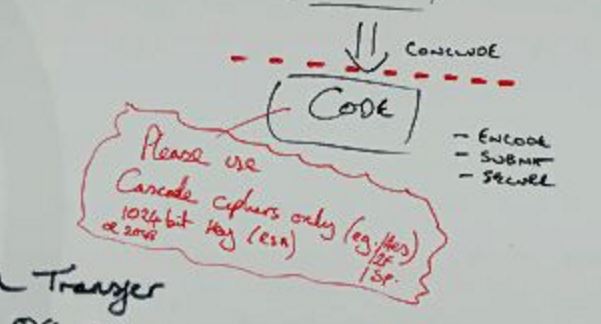 CONCLUDE
CODE
- ENCODE
- SUBMIT
- SECURE
Please use
Cascade ciphers only (eg. /Aes)
1024 bit key (RSA) /2F
or 2048 /Sp.
Transfer